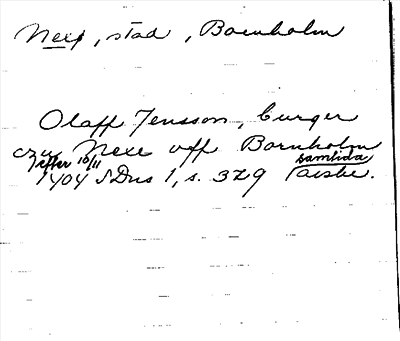 Nexø, stad, Bornholm
Olaff Jensson, burger
czu Nexe off Bornholm
efter 10/11 samtida
1404 SDns 1, s. 329